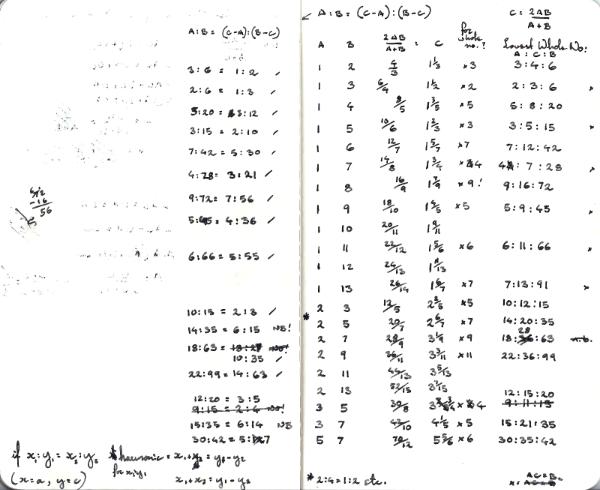 A:B = (C-A):(B-C)
3:6 = 1:2 ✓
2:6 = 1:3 ✓
5:20 = 3:12 ✓
3:15 = 2:10 ✓
7:42 = 5:30 ✓
4:28 = 3:21 ✓
9:72 = 7:56 ✓
5:45 = 4:36 ✓
6:66 = 5:55 ✓
10:15 = 2:3 ✓
14:35 = 6:15 NB!
18:63 =
10:35 ✓
22:99 = 14:63 ✓
12:20 = 3:5
9:15 = 2:4
15:35 = 6:14 NB
30:42 = 5:7
72
-16
56
if x₁:y₁ = x₂:y₂
harmonic = x₁+x₂ = y₁-y₂
for x₁y₁
(x = a, y = c)
x₁+x₂ = y₁-y₂
A:B = (C-A):(B-C) C = 2AB/A+B
A B 2AB/A+B = C for whole no.? Lowest Whole No:
A:C:B
1 2 4/3 1⅓ ×3 3:4:6
1 3 6/4 1½ ×2 2:3:6
1 4 8/5 1⅗ ×5 5:8:20
1 5 10/6 1⅔ ×3 3:5:15
1 6 12/7 1 5/7 ×7 7:12:42
1 7 14/8 1¾ ×4 4:7:28
1 8 16/9 1 7/9 ×9! 9:16:72
1 9 18/10 1⅘ ×5 5:9:45
1 10 20/11 1 9/11
1 11 22/12 1⅚ ×6 6:11:66
1 12 24/13 1 11/13
1 13 26/14 1 6/7 ×7 7:13:91
* 2 3 12/5 2⅖ ×5 10:12:15
2 5 20/7 2 6/7 ×7 14:20:35
2 7 28/9 3 1/9 ×9 18:28:63 n.b.
2 9 36/11 3 3/11 ×11 22:36:99
2 11 44/13 3 5/13
2 13 52/15 3 7/15
12:15:20
3 5 30/8 3¾ ×4 9:11:15
3 7 42/10 4⅕ ×5 15:21:35
5 7 70/12 5⅚ ×6 30:35:42
* 2:4 = 1:2 etc.